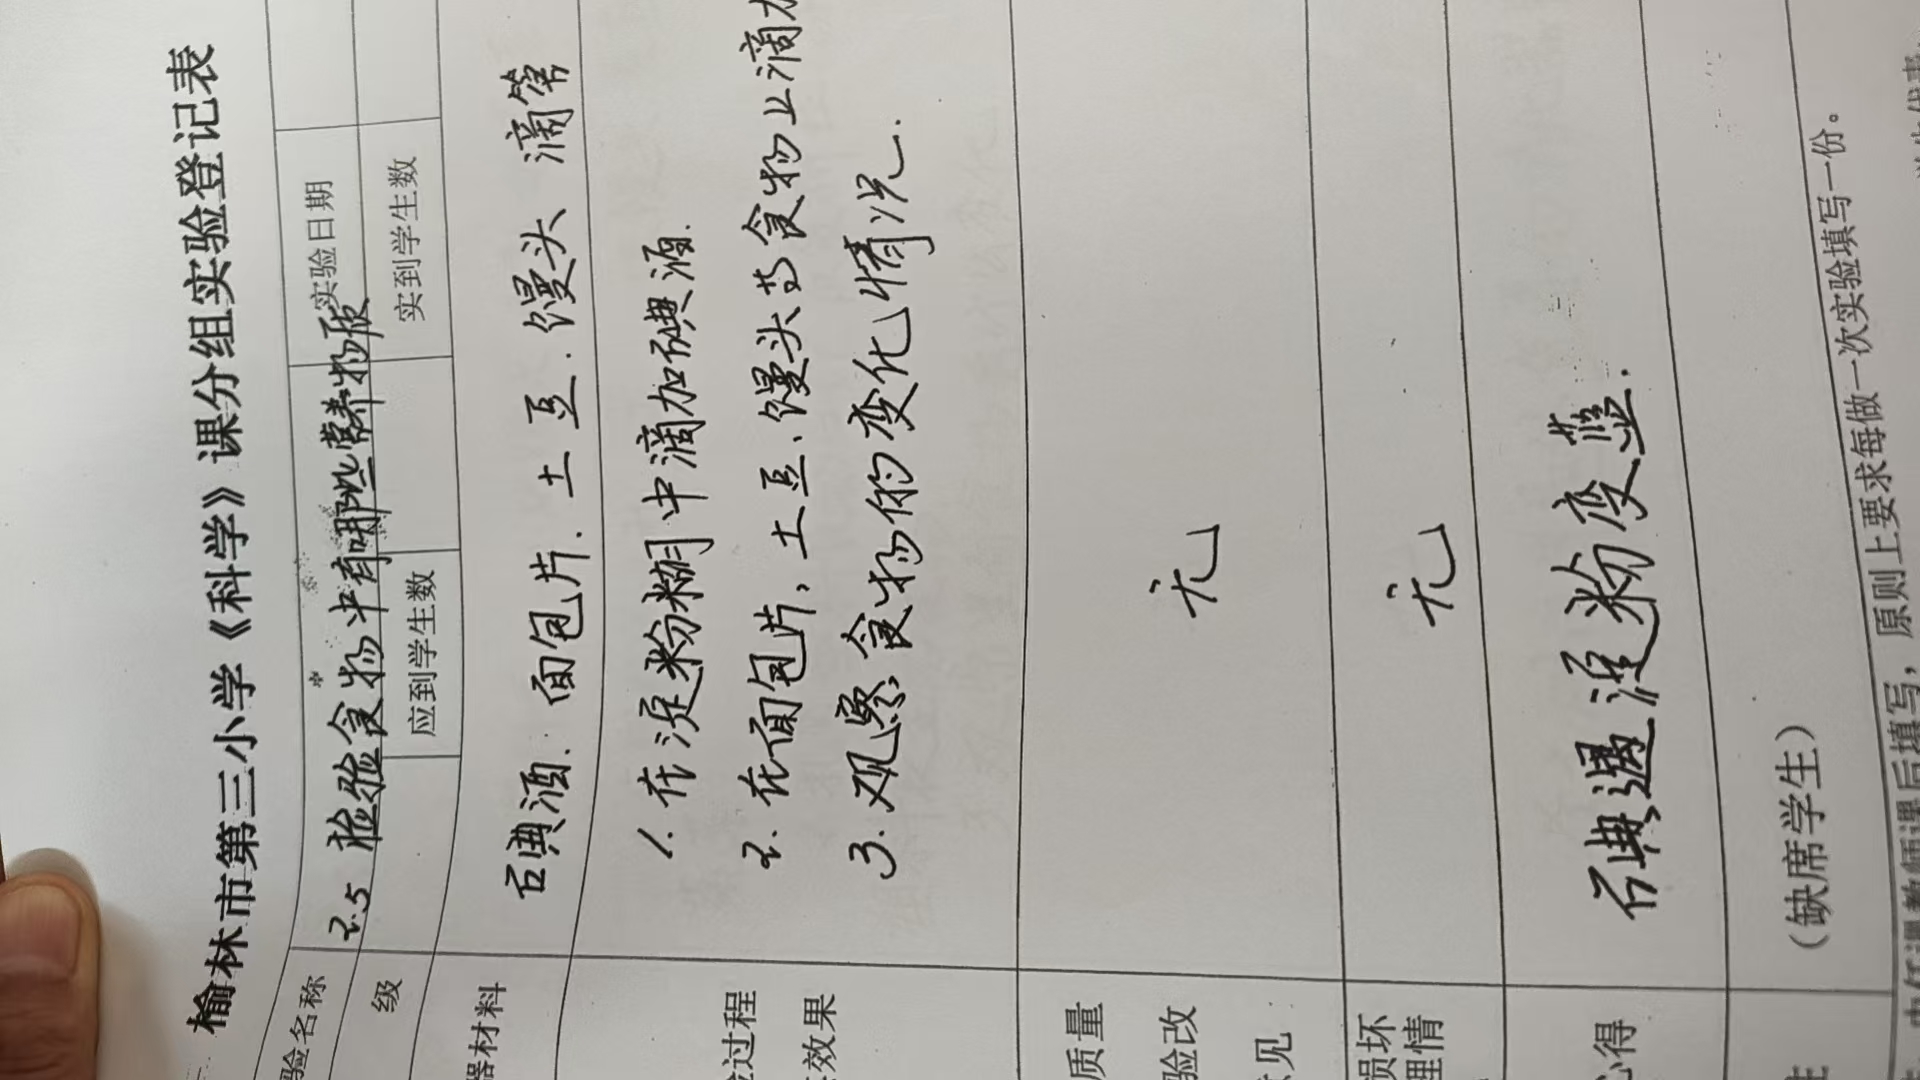 榆林市第三小学《科学》课分组实验登记表
验名称 2.5 检验食物中有哪些营养物质 实验日期
级 应到学生数 实到学生数
器材料 碘酒. 面包片. 土豆. 馒头 滴管
过程
效果
1. 在淀粉糊中滴加碘酒.
2. 在面包片, 土豆、馒头等食物上滴加
3. 观察食物的变化情况.
质量
验改
见:
无
损坏
理情
无
心得 碘遇淀粉变蓝.
(缺席学生)
任课教师课后填写,原则上要求每做一次实验填写一份。